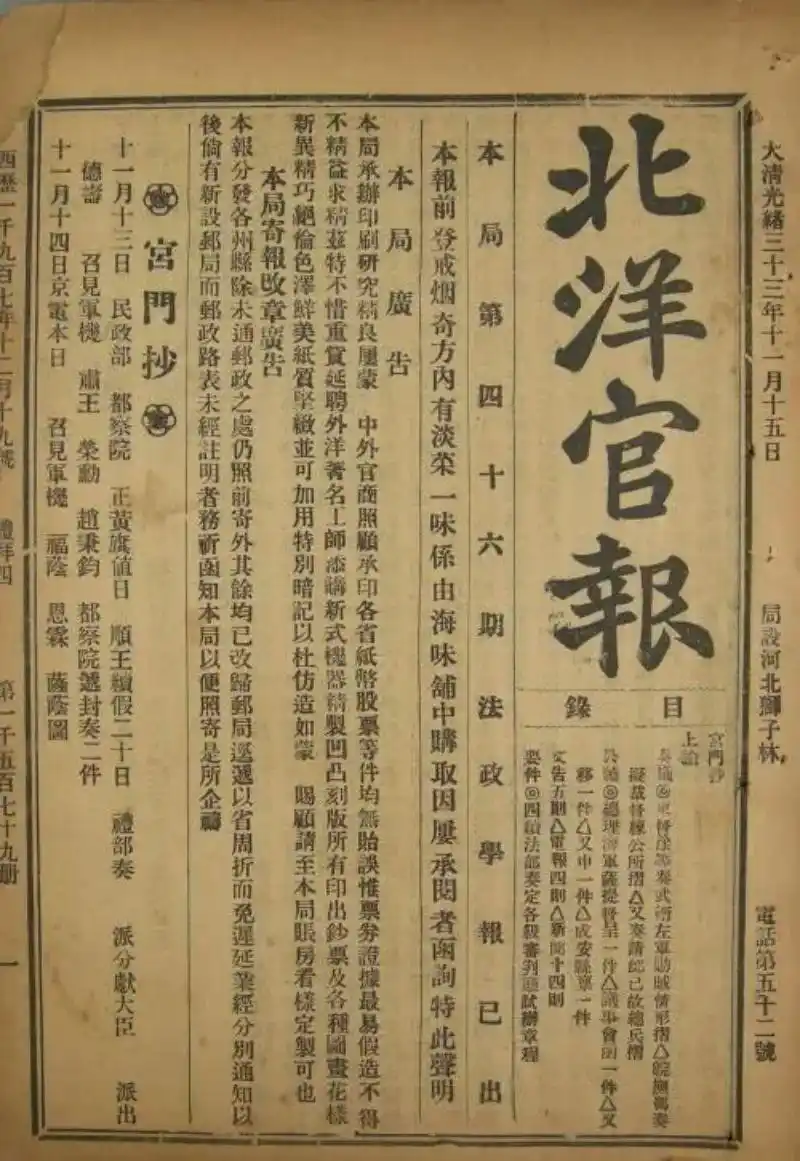 大清光緒三十三年十一月十五日 局設河北獅子林 電話第五十二號
北洋官報
目錄
宮門抄
上諭
擬裁督練公所摺△又奏請卹已故總兵摺
移一件△又申一件△成安縣稟一件
文告五則△電報四則△新聞十四則
要件◎四續法部奏定各級審判廳試辦章程
本局第四十六期法政學報已出
本報前登戒烟奇方內有淡菜一味係由海味舖中購取因屢承閱者函詢特此聲明
本局廣告
本局承辦印刷研究精良屢蒙 中外官商照顧承印各省紙幣股票等件均無貽誤惟票劵證據最易假造不得
不精益求精茲特不惜重貲延聘外洋著名工師添購新式機器精製凹凸刻版所有印出鈔票及各種圖畫花樣
新異精巧絕倫色澤鮮美紙質堅緻並可加用特別暗記以杜仿造如蒙 賜顧請至本局賬房看樣定製可也
本局寄報改章廣告
本報分發各州縣除未通郵政之處仍照前寄外其餘均已改歸郵局遞以省周折而免遲延業經分別通知以
後倘有新設郵局而郵政路表未經註明者務祈函知本局以便照寄是所企禱
宮門抄
十一月十三日 民政部 都察院 正黃旗值日 順王續假二十日 禮部奏 派分獻大臣 派出
德壽 召見軍機 肅王 榮勳 趙秉鈞 都察院遞封奏二件
十一月十四日京電本日 召見軍機 福蔭 恩霖 薩蔭圖
西歷一千九百七年十二月十九號 禮拜四 第一千五百七十九册 一